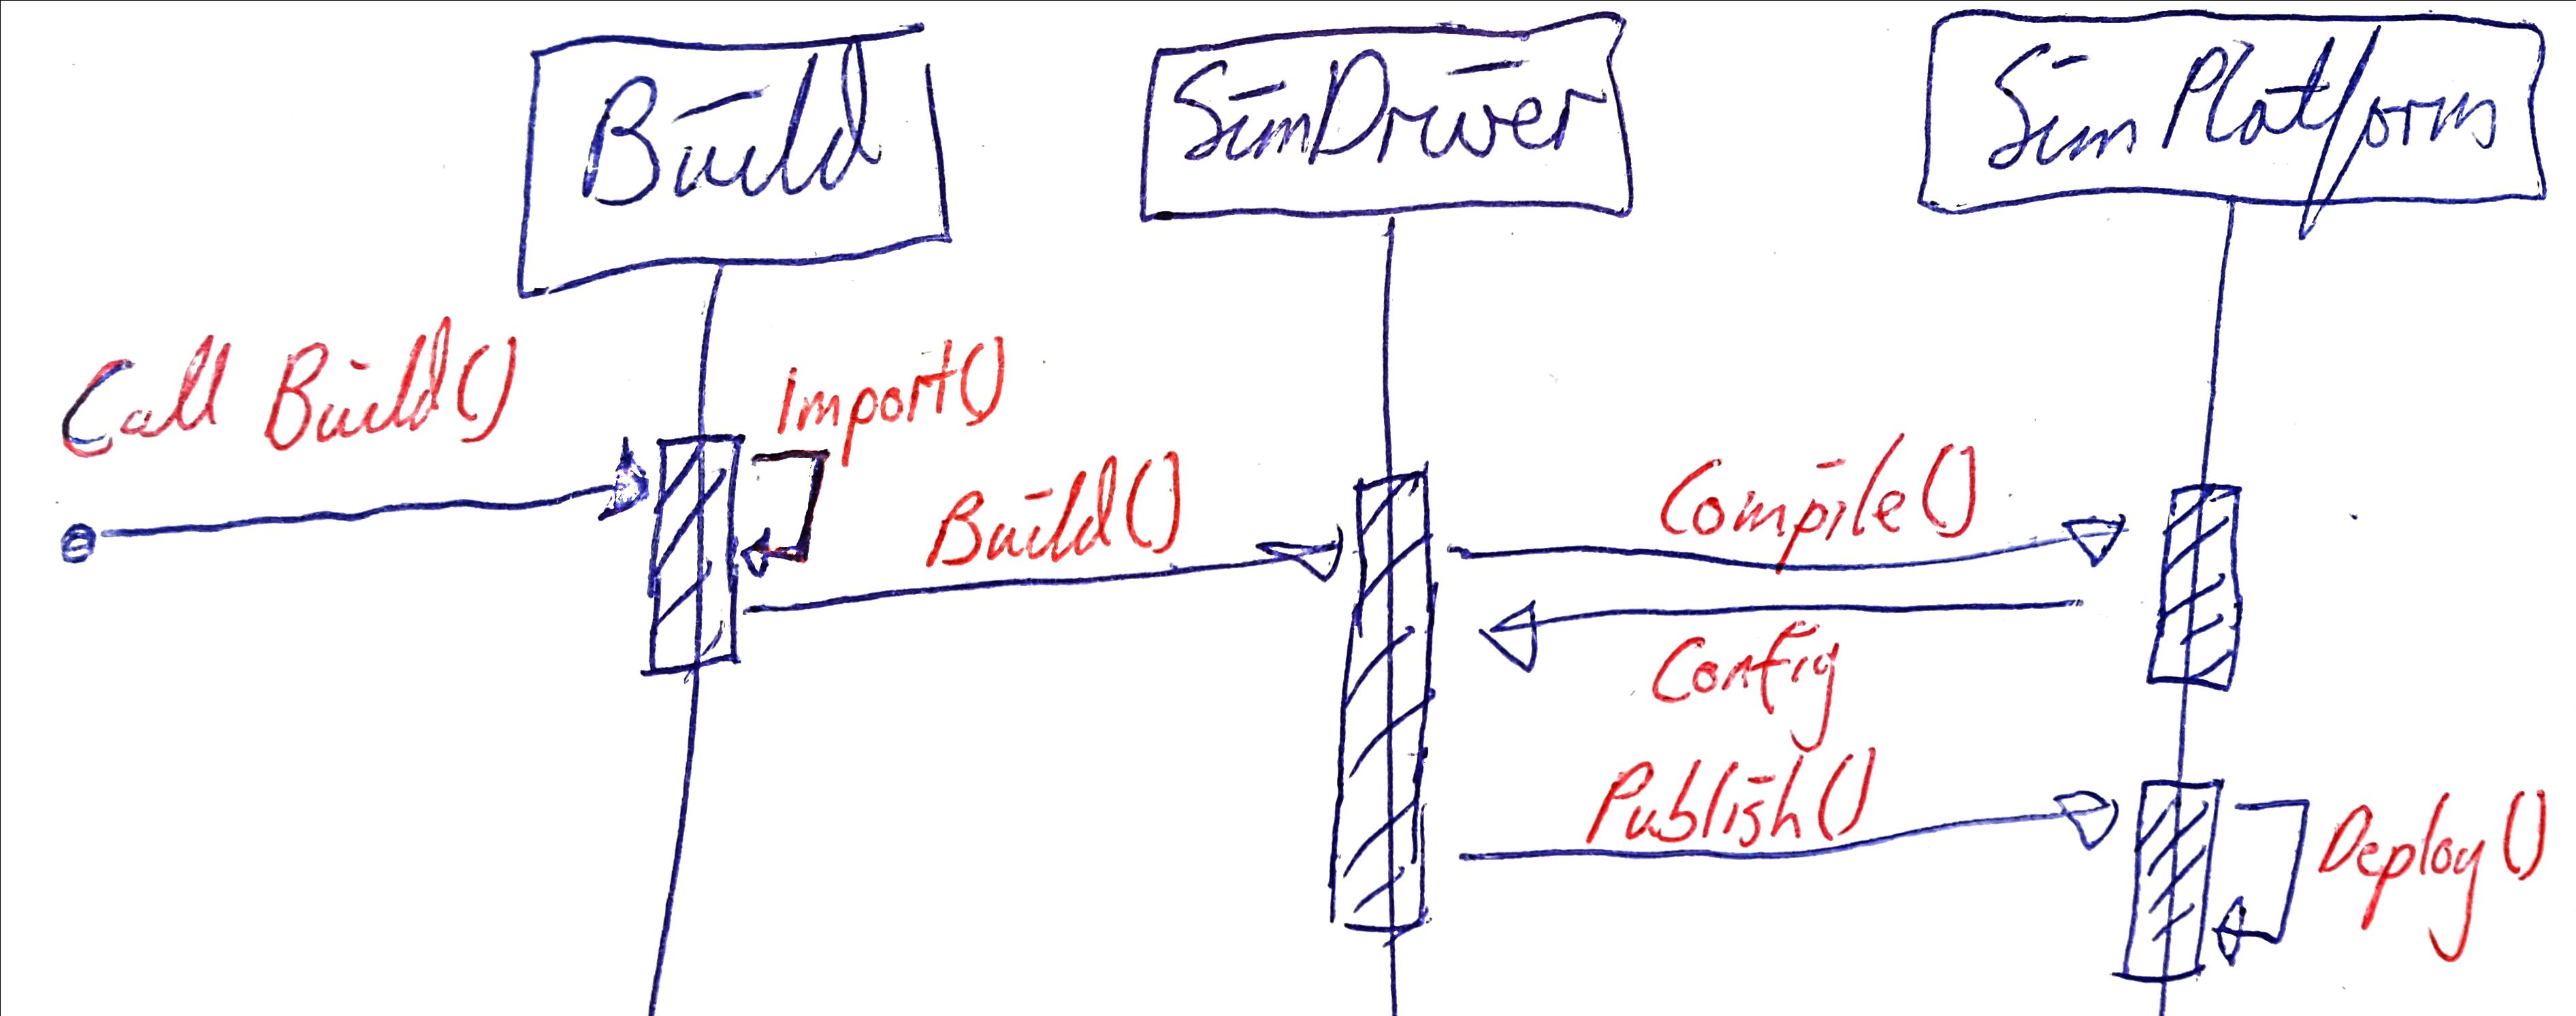 Build
SimDriver
SimPlatform
Call Build()
Import()
Build()
Compile()
Config
Publish()
Deploy()